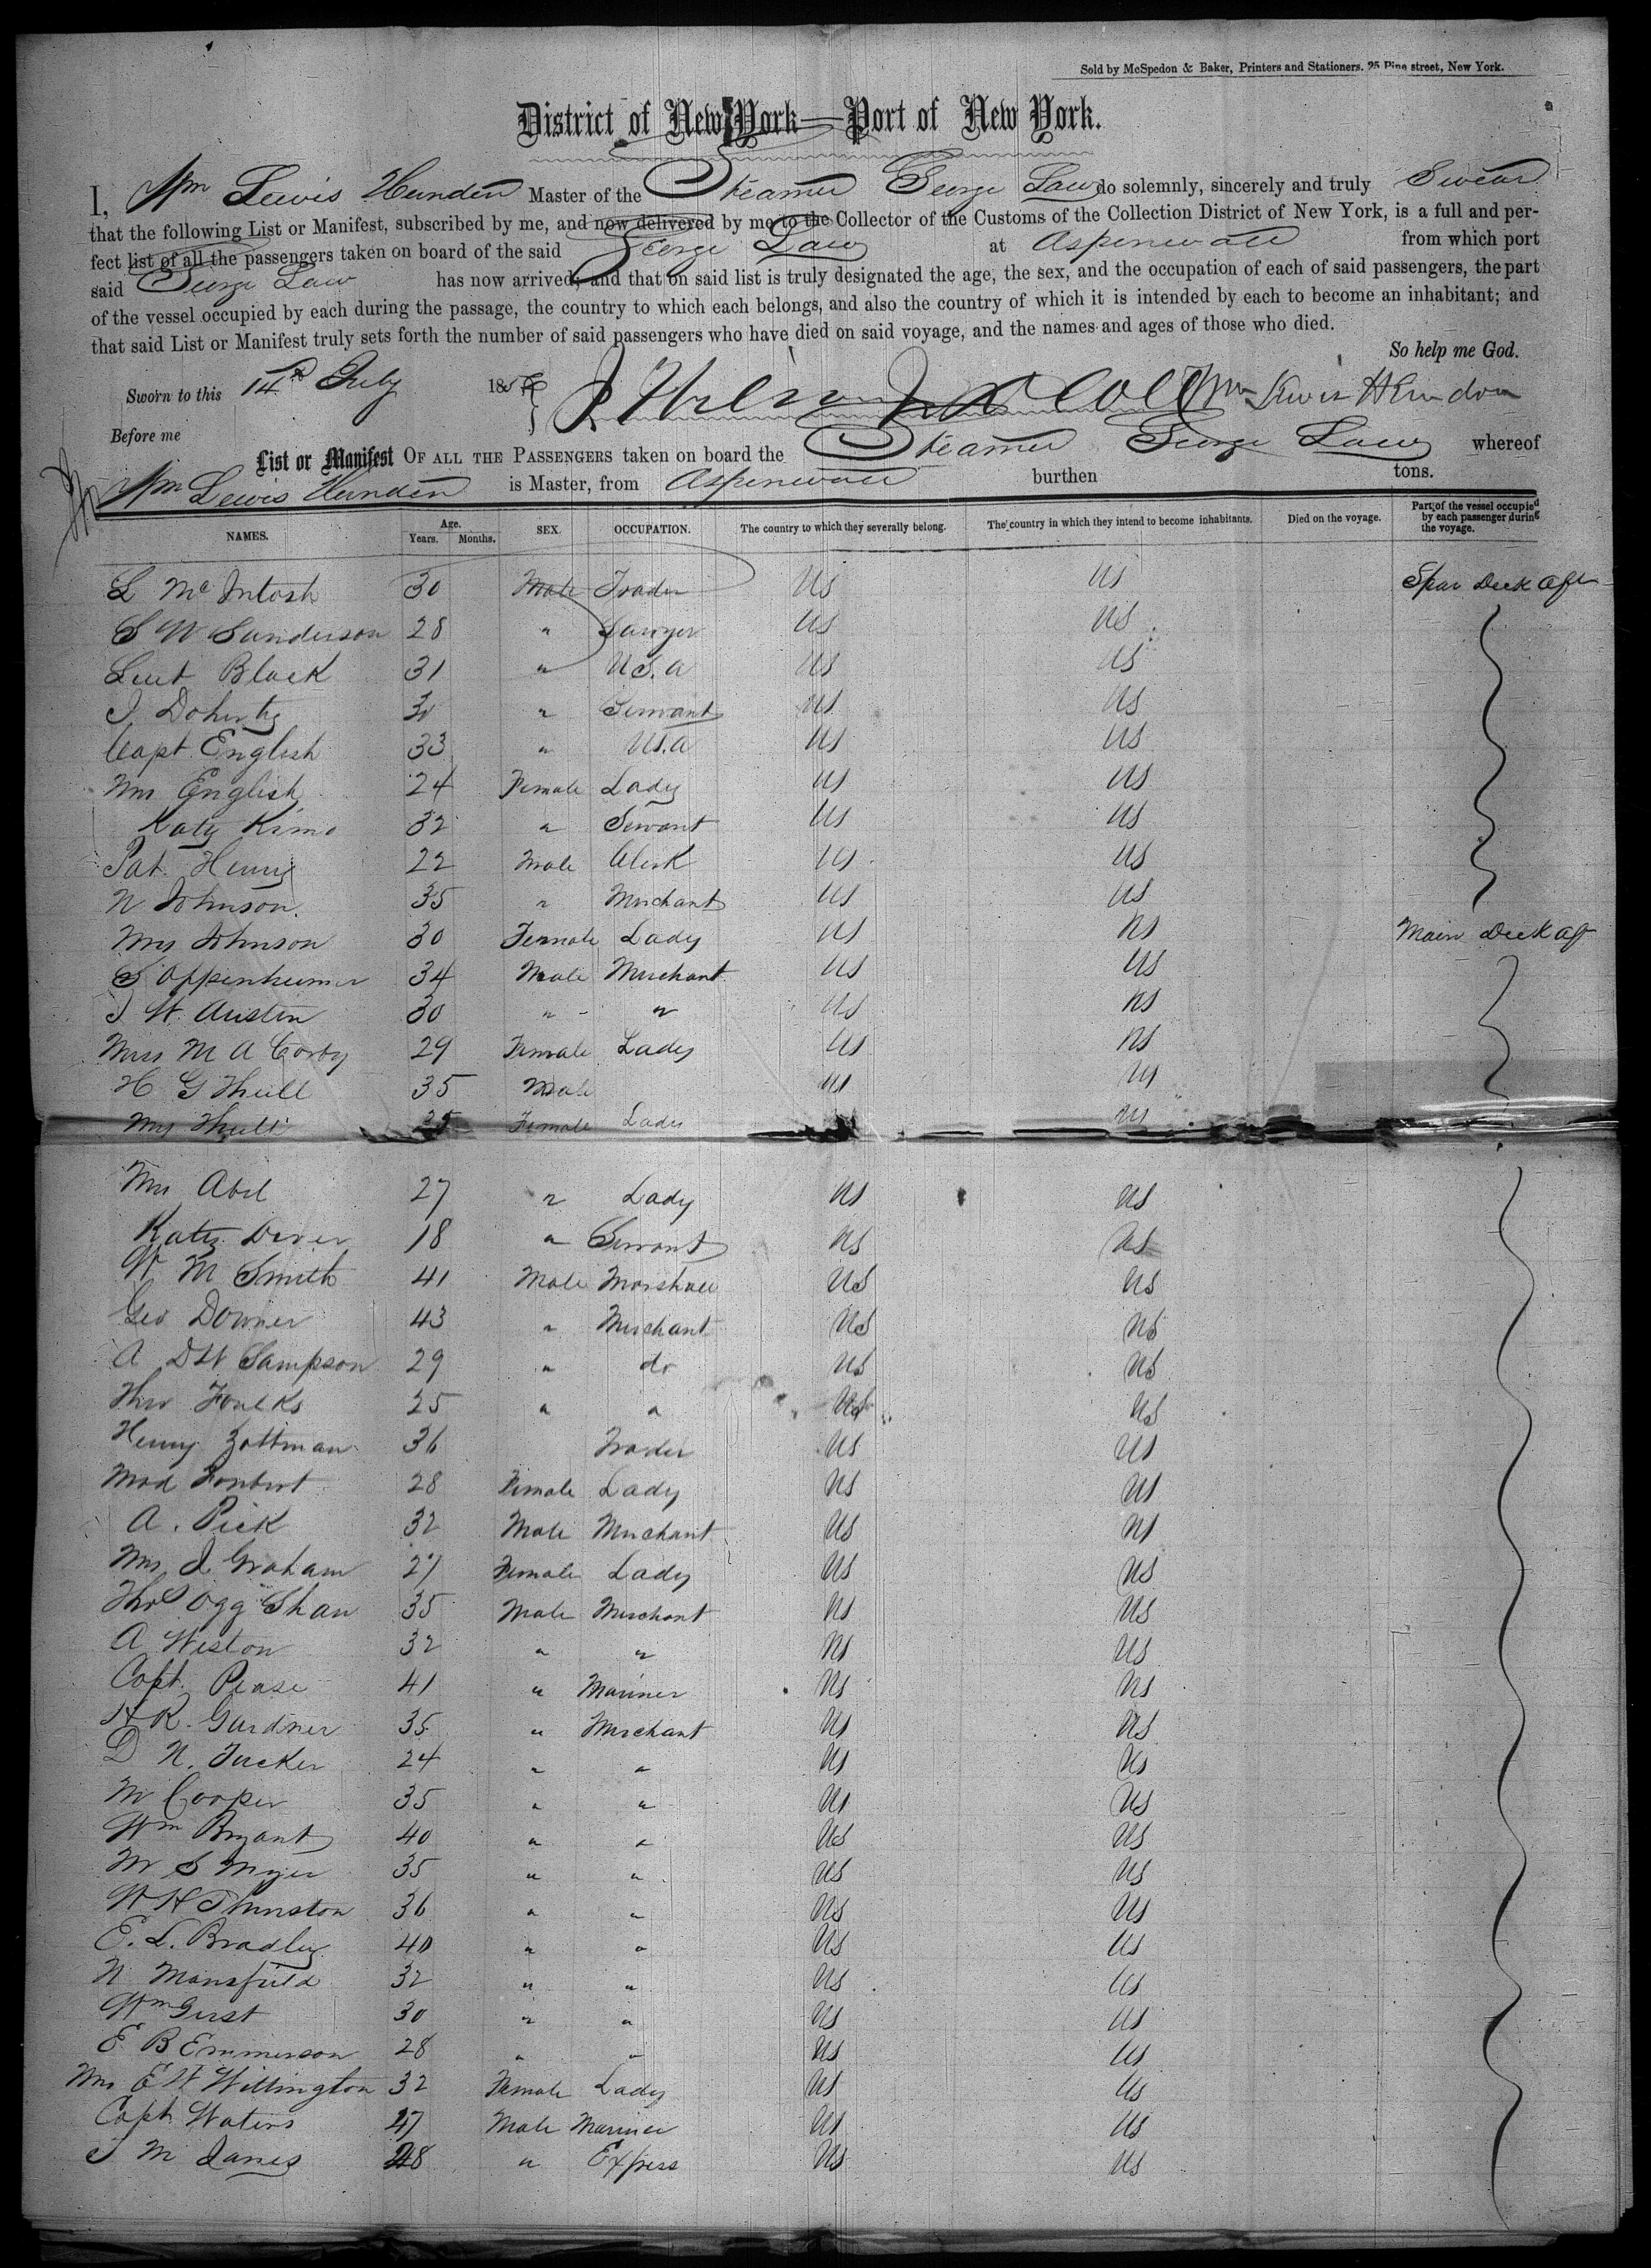 Sold by McSpedon & Baker, Printers and Stationers. 25 Pine street, New York.
District of New York—Port of New York.
I, Wm Lewis Herndon Master of the Steamer George Law do solemnly, sincerely and truly Swear
that the following List or Manifest, subscribed by me, and now delivered by me to the Collector of the Customs of the Collection District of New York, is a full and per-
fect list of all the passengers taken on board of the said George Law at Aspinwall from which port
said George Law has now arrived; and that on said list is truly designated the age, the sex, and the occupation of each of said passengers, the part
of the vessel occupied by each during the passage, the country to which each belongs, and also the country of which it is intended by each to become an inhabitant; and
that said List or Manifest truly sets forth the number of said passengers who have died on said voyage, and the names and ages of those who died.
So help me God.
Sworn to this 14th July 185 Wm Lewis Herndon
Before me
List or Manifest OF ALL THE PASSENGERS taken on board the Steamer George Law whereof
Wm Lewis Herndon is Master, from Aspinwall burthen tons.
NAMES. Age. Years. Months. SEX. OCCUPATION. The country to which they severally belong. The country in which they intend to become inhabitants. Died on the voyage. Part of the vessel occupied by each passenger during the voyage.
L McIntosh 30 Male Trader US US Spar Deck Aft
S W Sanderson 28 " Lawyer US US
Lieut Black 31 " U.S.A US US
J Doherty 30 " Servant US US
Capt English 33 " U.S.A US US
Mrs English 24 Female Lady US US
Katy 32 " Servant US US
Pat Henry 22 Male Clerk US US
N Johnson. 35 " Merchant US US
Mrs Johnson 30 Female Lady US US Main Deck Aft
S Oppenheimer 34 Male Merchant US US
J W Austin 30 " " US US
Miss M A Corby 29 Female Lady US US
H G Thull 35 Male US US
Mrs Thull 25 Female Lady US
Mrs Abel 27 " Lady US US
Katy Dever 18 " Servant US US
W M Smith 41 Male Marshall US US
Geo Downer 43 " Merchant US US
A D W Sampson 29 " do US US
Theo Foulks 25 " " US US
Henry Zottman 36 Trader US US
Mad 28 Female Lady US US
A. Pick 32 Male Merchant US US
Mrs J. Graham 27 Female Lady US US
Thos Ogg Shaw 35 Male Merchant US US
A Weston 32 " " US US
Capt. Pease 41 " Mariner US US
H K. Gardner 35 " Merchant US US
D N. Tucker 24 " " US US
M Cooper 35 " " US US
Wm Bryant 40 " " US US
M S Myer 35 " " US US
W H Thurston 36 " " US US
E. L. Bradley 40 " " US US
N Mansfield 32 " " US US
Wm Gerst 30 " " US US
E B Emmerson 28 " " US US
Mrs E W Willington 32 Female Lady US US
Capt. Waters 47 Male Mariner US US
J M Janes 48 " Express US US